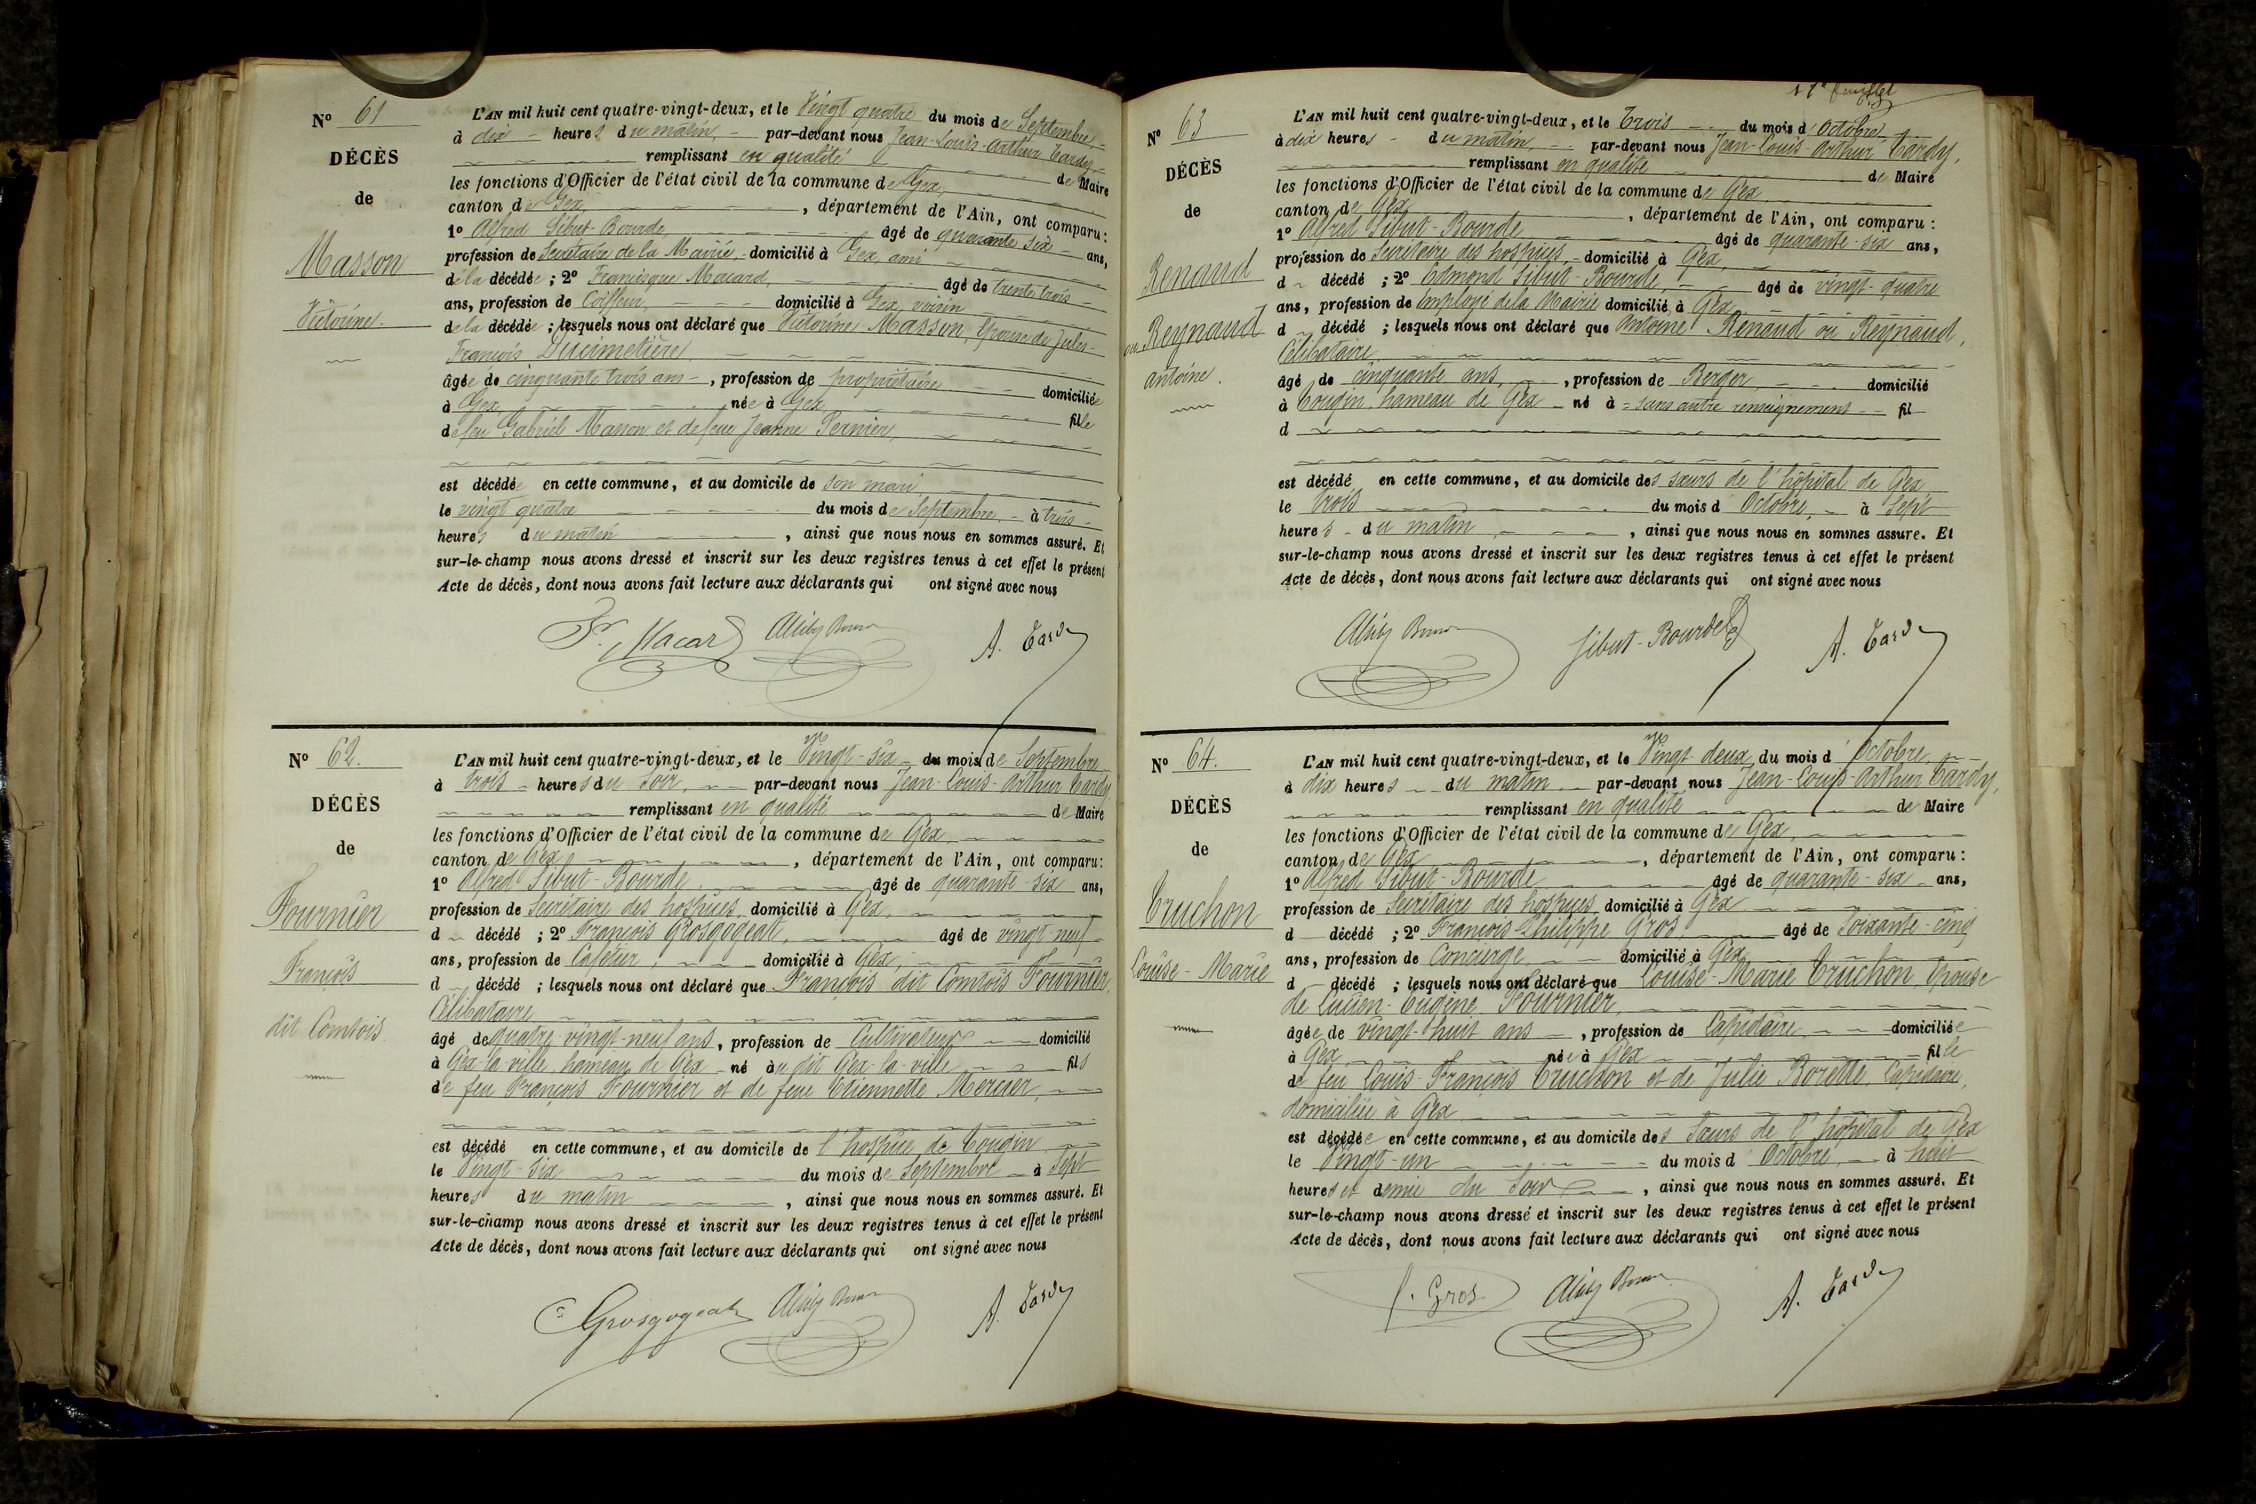 N° 61
DÉCÈS
de
Masson
Victorine
L'AN mil huit cent quatre-vingt-deux, et le Vingt quatre du mois de Septembre
à dix heures du matin par-devant nous Jean-Louis-Arthur Tardy
remplissant en qualité de Maire
les fonctions d'Officier de l'état civil de la commune de Gex
canton de Gex, département de l'Ain, ont comparu :
1° Alfred Sibut-Bourde âgé de quarante six ans,
profession de Secrétaire de la Mairie, domicilié à Gex, ami
de la décédée ; 2° Francisque Macard, âgé de trente trois
ans, profession de Coiffeur, domicilié à Gex, voisin
de la décédée ; lesquels nous ont déclaré que Victorine Masson, Epouse de Jules-
François Ducimetière,
âgée de cinquante trois ans, profession de propriétaire domiciliée
à Gex née à Gex, fille
de feu Gabriel Masson et de feue Jeanne Pernier,
est décédée en cette commune, et au domicile de son mari
le vingt quatre du mois de Septembre, à trois
heures du matin, ainsi que nous nous en sommes assuré. Et
sur-le-champ nous avons dressé et inscrit sur les deux registres tenus à cet effet le présent
Acte de décès, dont nous avons fait lecture aux déclarants qui ont signé avec nous
Fr. Macard A. Tardy
N° 62.
DÉCÈS
de
Fournier
François
dit Comtois
L'AN mil huit cent quatre-vingt-deux, et le Vingt-six du mois de Septembre
à trois heures du Soir, par-devant nous Jean-Louis-Arthur Tardy
remplissant en qualité de Maire
les fonctions d'Officier de l'état civil de la commune de Gex,
canton de Gex, département de l'Ain, ont comparu :
1° Alfred Sibut-Bourde, âgé de quarante-six ans,
profession de Secrétaire des hospices, domicilié à Gex,
d décédé ; 2° François Grosgogeat, âgé de vingt-neuf
ans, profession de Cafetier, domicilié à Gex,
d décédé ; lesquels nous ont déclaré que François dit Comtois Fournier,
Célibataire
âgé de quatre vingt-neuf ans, profession de Cultivateur domicilié
à Gex-la-ville, hameau de Gex né au dit Gex-la-ville fils
de feu François Fournier et de feue Etiennette Mercier,
est décédé en cette commune, et au domicile de l'hospice de Tougin
le Vingt-six du mois de Septembre à Sept
heures du matin, ainsi que nous nous en sommes assuré. Et
sur-le-champ nous avons dressé et inscrit sur les deux registres tenus à cet effet le présent
Acte de décès, dont nous avons fait lecture aux déclarants qui ont signé avec nous
Grosgogeat A. Tardy
feuillet
N° 63
DÉCÈS
de
Renaud
ou Reynaud
Antoine.
L'AN mil huit cent quatre-vingt-deux, et le Trois du mois d'Octobre
à dix heures du matin, par-devant nous Jean-Louis-Arthur Tardy,
remplissant en qualité de Maire
les fonctions d'Officier de l'état civil de la commune de Gex
canton de Gex, département de l'Ain, ont comparu :
1° Alfred Sibut-Bourde, âgé de quarante-six ans,
profession de Secrétaire des hospices, domicilié à Gex,
d décédé ; 2° Edmond Sibut-Bourde, âgé de vingt-quatre
ans, profession de Employé de la Mairie domicilié à Gex
d décédé ; lesquels nous ont déclaré que Antoine Renaud ou Reynaud,
Célibataire
âgé de cinquante ans, profession de Berger, domicilié
à Tougin, hameau de Gex né à sans autre renseignement fil
d
est décédé en cette commune, et au domicile des sœurs de l'hôpital de Gex
le trois du mois d'Octobre, à Sept
heures du matin, ainsi que nous nous en sommes assuré. Et
sur-le-champ nous avons dressé et inscrit sur les deux registres tenus à cet effet le présent
Acte de décès, dont nous avons fait lecture aux déclarants qui ont signé avec nous
Sibut-Bourde A. Tardy
N° 64.
DÉCÈS
de
Truchon
Louise-Marie
L'AN mil huit cent quatre-vingt-deux, et le Vingt-deux du mois d'Octobre
à dix heures du matin par-devant nous Jean-Louis-Arthur Tardy,
remplissant en qualité de Maire
les fonctions d'Officier de l'état civil de la commune de Gex,
canton de Gex, département de l'Ain, ont comparu :
1° Alfred Sibut-Bourde âgé de quarante-six ans,
profession de Secrétaire des hospices, domicilié à Gex
d décédé ; 2° François-Philippe Gros âgé de Soixante-cinq
ans, profession de Concierge domicilié à Gex
d décédé ; lesquels nous ont déclaré que Louise-Marie Truchon, Epouse
de Lucien-Eugène Fournier,
âgée de vingt-huit ans, profession de Lapidaire domiciliée
à Gex née à Gex fille
de feu Louis-François Truchon et de Julie Borette, Lapidaire,
domiciliée à Gex
est décédée en cette commune, et au domicile des Sœurs de l'hôpital de Gex
le Vingt-un du mois d'Octobre, à huit
heures et demie du Soir, ainsi que nous nous en sommes assuré. Et
sur-le-champ nous avons dressé et inscrit sur les deux registres tenus à cet effet le présent
Acte de décès, dont nous avons fait lecture aux déclarants qui ont signé avec nous
Gros A. Tardy